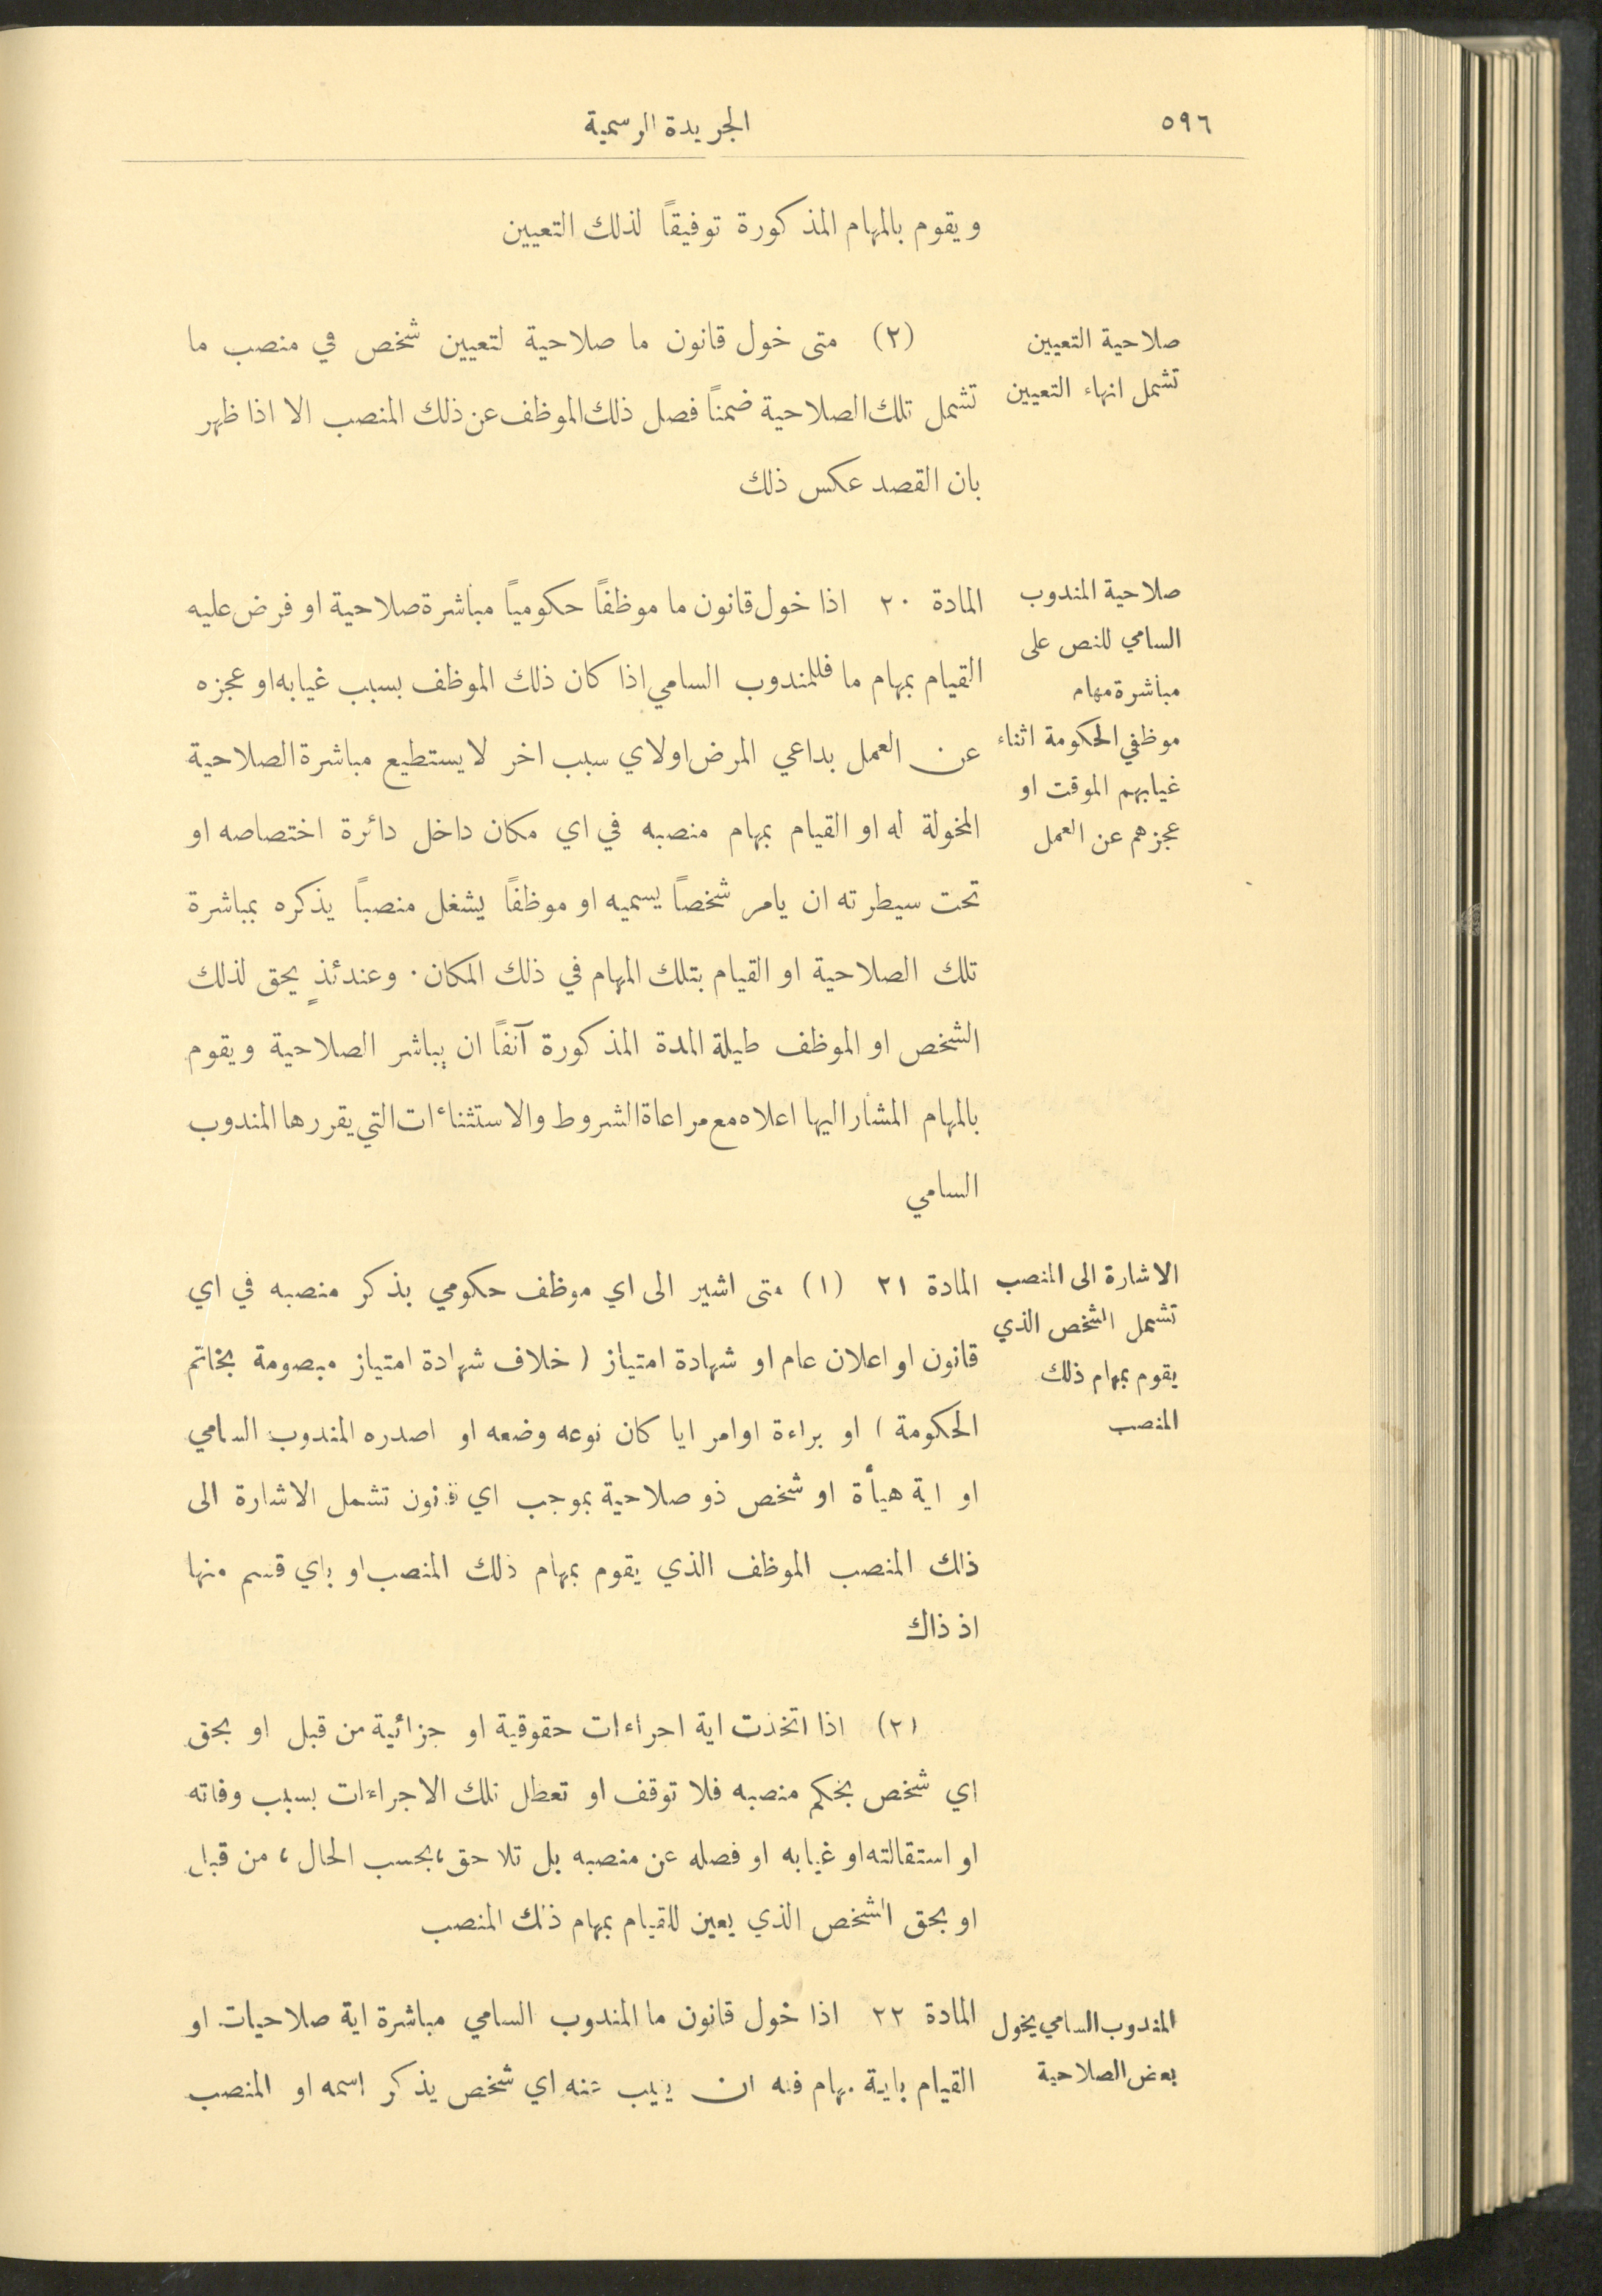 ٥٩٦
الجريدة الرسمية
ويقوم بالمهام المذكورة توفيقاً لذلك التعيين
صلاحية التعيين
تشمل انهاء التعيين
(٢) متى خول قانون ما صلاحية لتعيين شخص في منصب ما
تشمل تلك الصلاحية ضمناً فصل ذلك الموظف عن ذلك المنصب الا اذا ظهر
بان القصد عكس ذلك
صلاحية المندوب
السامي للنص على
مباشرة مهام
موظفي الحكومة اثناء
غيابهم الموقت او
عجزهم عن العمل
المادة ٢٠ اذا خول قانون ما موظفاً حكومياً مباشرة صلاحية او فرض عليه
القيام بمهام ما فللمندوب السامي اذا كان ذلك الموظف بسبب غيابه او عجزه
عن العمل بداعي المرض او لاي سبب اخر لا يستطيع مباشرة الصلاحية
المخولة له او القيام بمهام منصبه في اي مكان داخل دائرة اختصاصه او
تحت سيطرته ان يامر شخصاً يسميه او موظفاً يشغل منصباً يذكره بمباشرة
تلك الصلاحية او القيام بتلك المهام في ذلك المكان. وعندئذٍ يحق لذلك
الشخص او الموظف طيلة المدة المذكورة آنفاً ان يباشر الصلاحية ويقوم
بالمهام المشار اليها اعلاه مع مراعاة الشروط والاستثناءات التي يقررها المندوب
السامي
الاشارة الى المنصب
تشمل الشخص الذي
يقوم بمهام ذلك
المنصب
المادة ٢١ (١) متى اشير الى اي موظف حكومي بذكر منصبه في اي
قانون او اعلان عام او شهادة امتياز (خلاف شهادة امتياز مبصومة بخاتم
الحكومة) او براءة او امر ايا كان نوعه وضعه او اصدره المندوب السامي
او اية هيأة او شخص ذو صلاحية بموجب اي قانون تشمل الاشارة الى
ذلك المنصب الموظف الذي يقوم بمهام ذلك المنصب او باي قسم منها
اذ ذاك
(٢) اذا اتخذت اية اجراءات حقوقية او جزائية من قبل او بحق
اي شخص بحكم منصبه فلا توقف او تعطل تلك الاجراءات بسبب وفاته
او استقالته او غيابه او فصله عن منصبه بل تلاحق، بحسب الحال، من قبل
او بحق الشخص الذي يعين للقيام بمهام ذلك المنصب
المندوب السامي يخول
بعض الصلاحية
المادة ٢٢ اذا خول قانون ما المندوب السامي مباشرة اية صلاحيات او
القيام باية مهام فله ان ينيب عنه اي شخص يذكر اسمه او المنصب